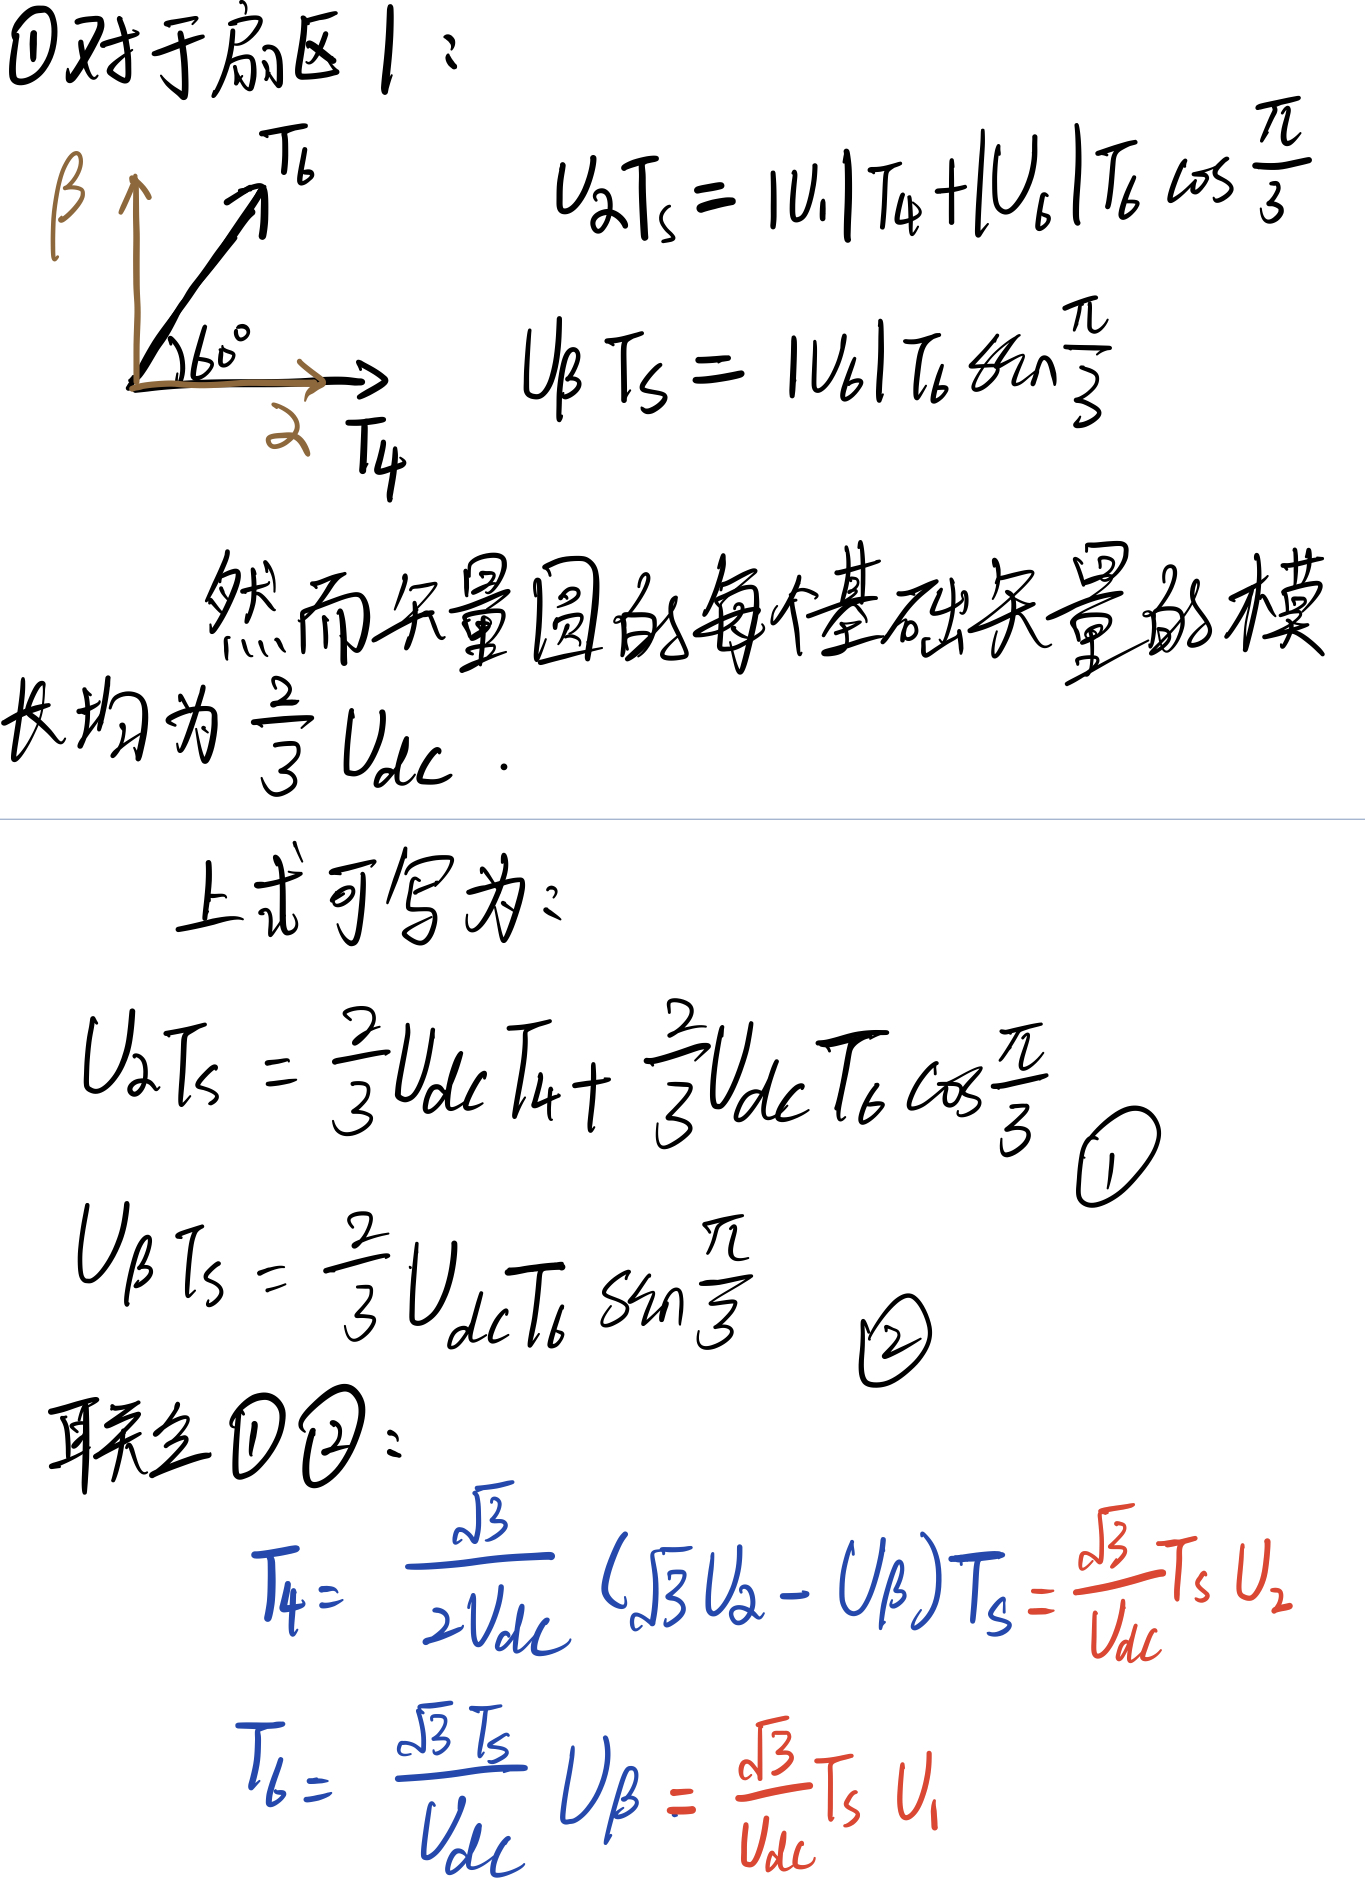 ①对于扇区1:
β
T₆
60°
α
T₄
UαTs = |U₁|T₄+|U₆|T₆ cos π/3
Uβ Ts = |U₆|T₆ sin π/3
然而矢量圆的每个基础矢量的模
长均为 2/3 Udc .
上式可写为:
UαTs = 2/3 Udc T₄ + 2/3 Udc T₆ cos π/3 ①
Uβ Ts = 2/3 Udc T₆ sin π/3 ②
联立①②:
T₄ = √3/2Udc (√3 Uα - Uβ) Ts = √3/Udc Ts U₂
T₆ = √3 Ts/Udc Uβ = √3/Udc Ts U₁